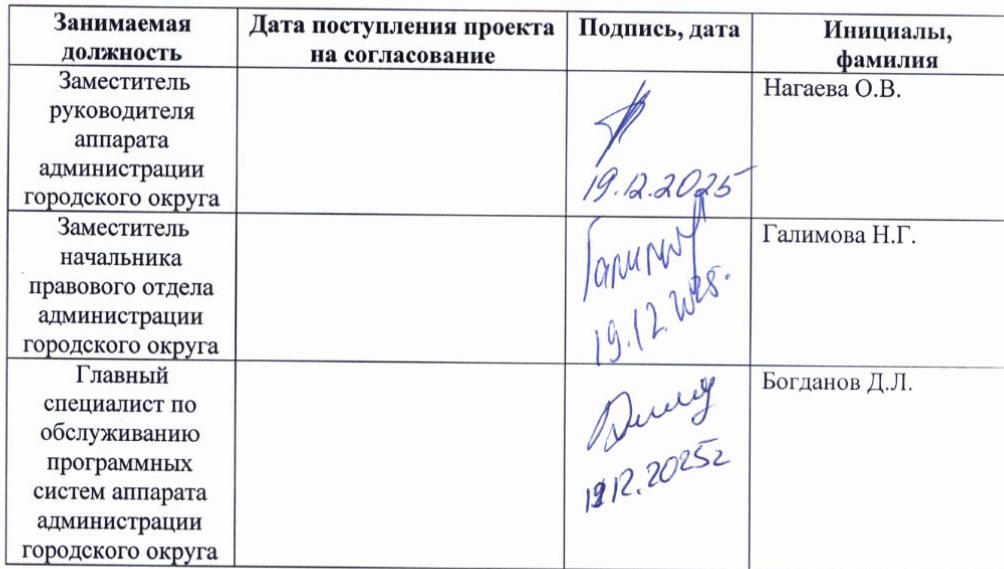 Занимаемая
должность
Дата поступления проекта
на согласование
Подпись, дата
Инициалы,
фамилия
Заместитель
руководителя
аппарата
администрации
городского округа
19.12.2025
Нагаева О.В.
Заместитель
начальника
правового отдела
администрации
городского округа
19.12.2025.
Галимова Н.Г.
Главный
специалист по
обслуживанию
программных
систем аппарата
администрации
городского округа
19.12.2025г
Богданов Д.Л.